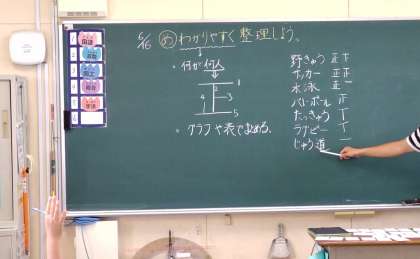 6/16 め わかりやすく整理しよう。
・何が何人
1
2
3
4
5
・グラフや表でまとめる。
野きゅう 正下
サッカー 正正
水泳 正一
バレーボール 正
たっきゅう 丅
ラグビー 丅
じゅう道 一
国語